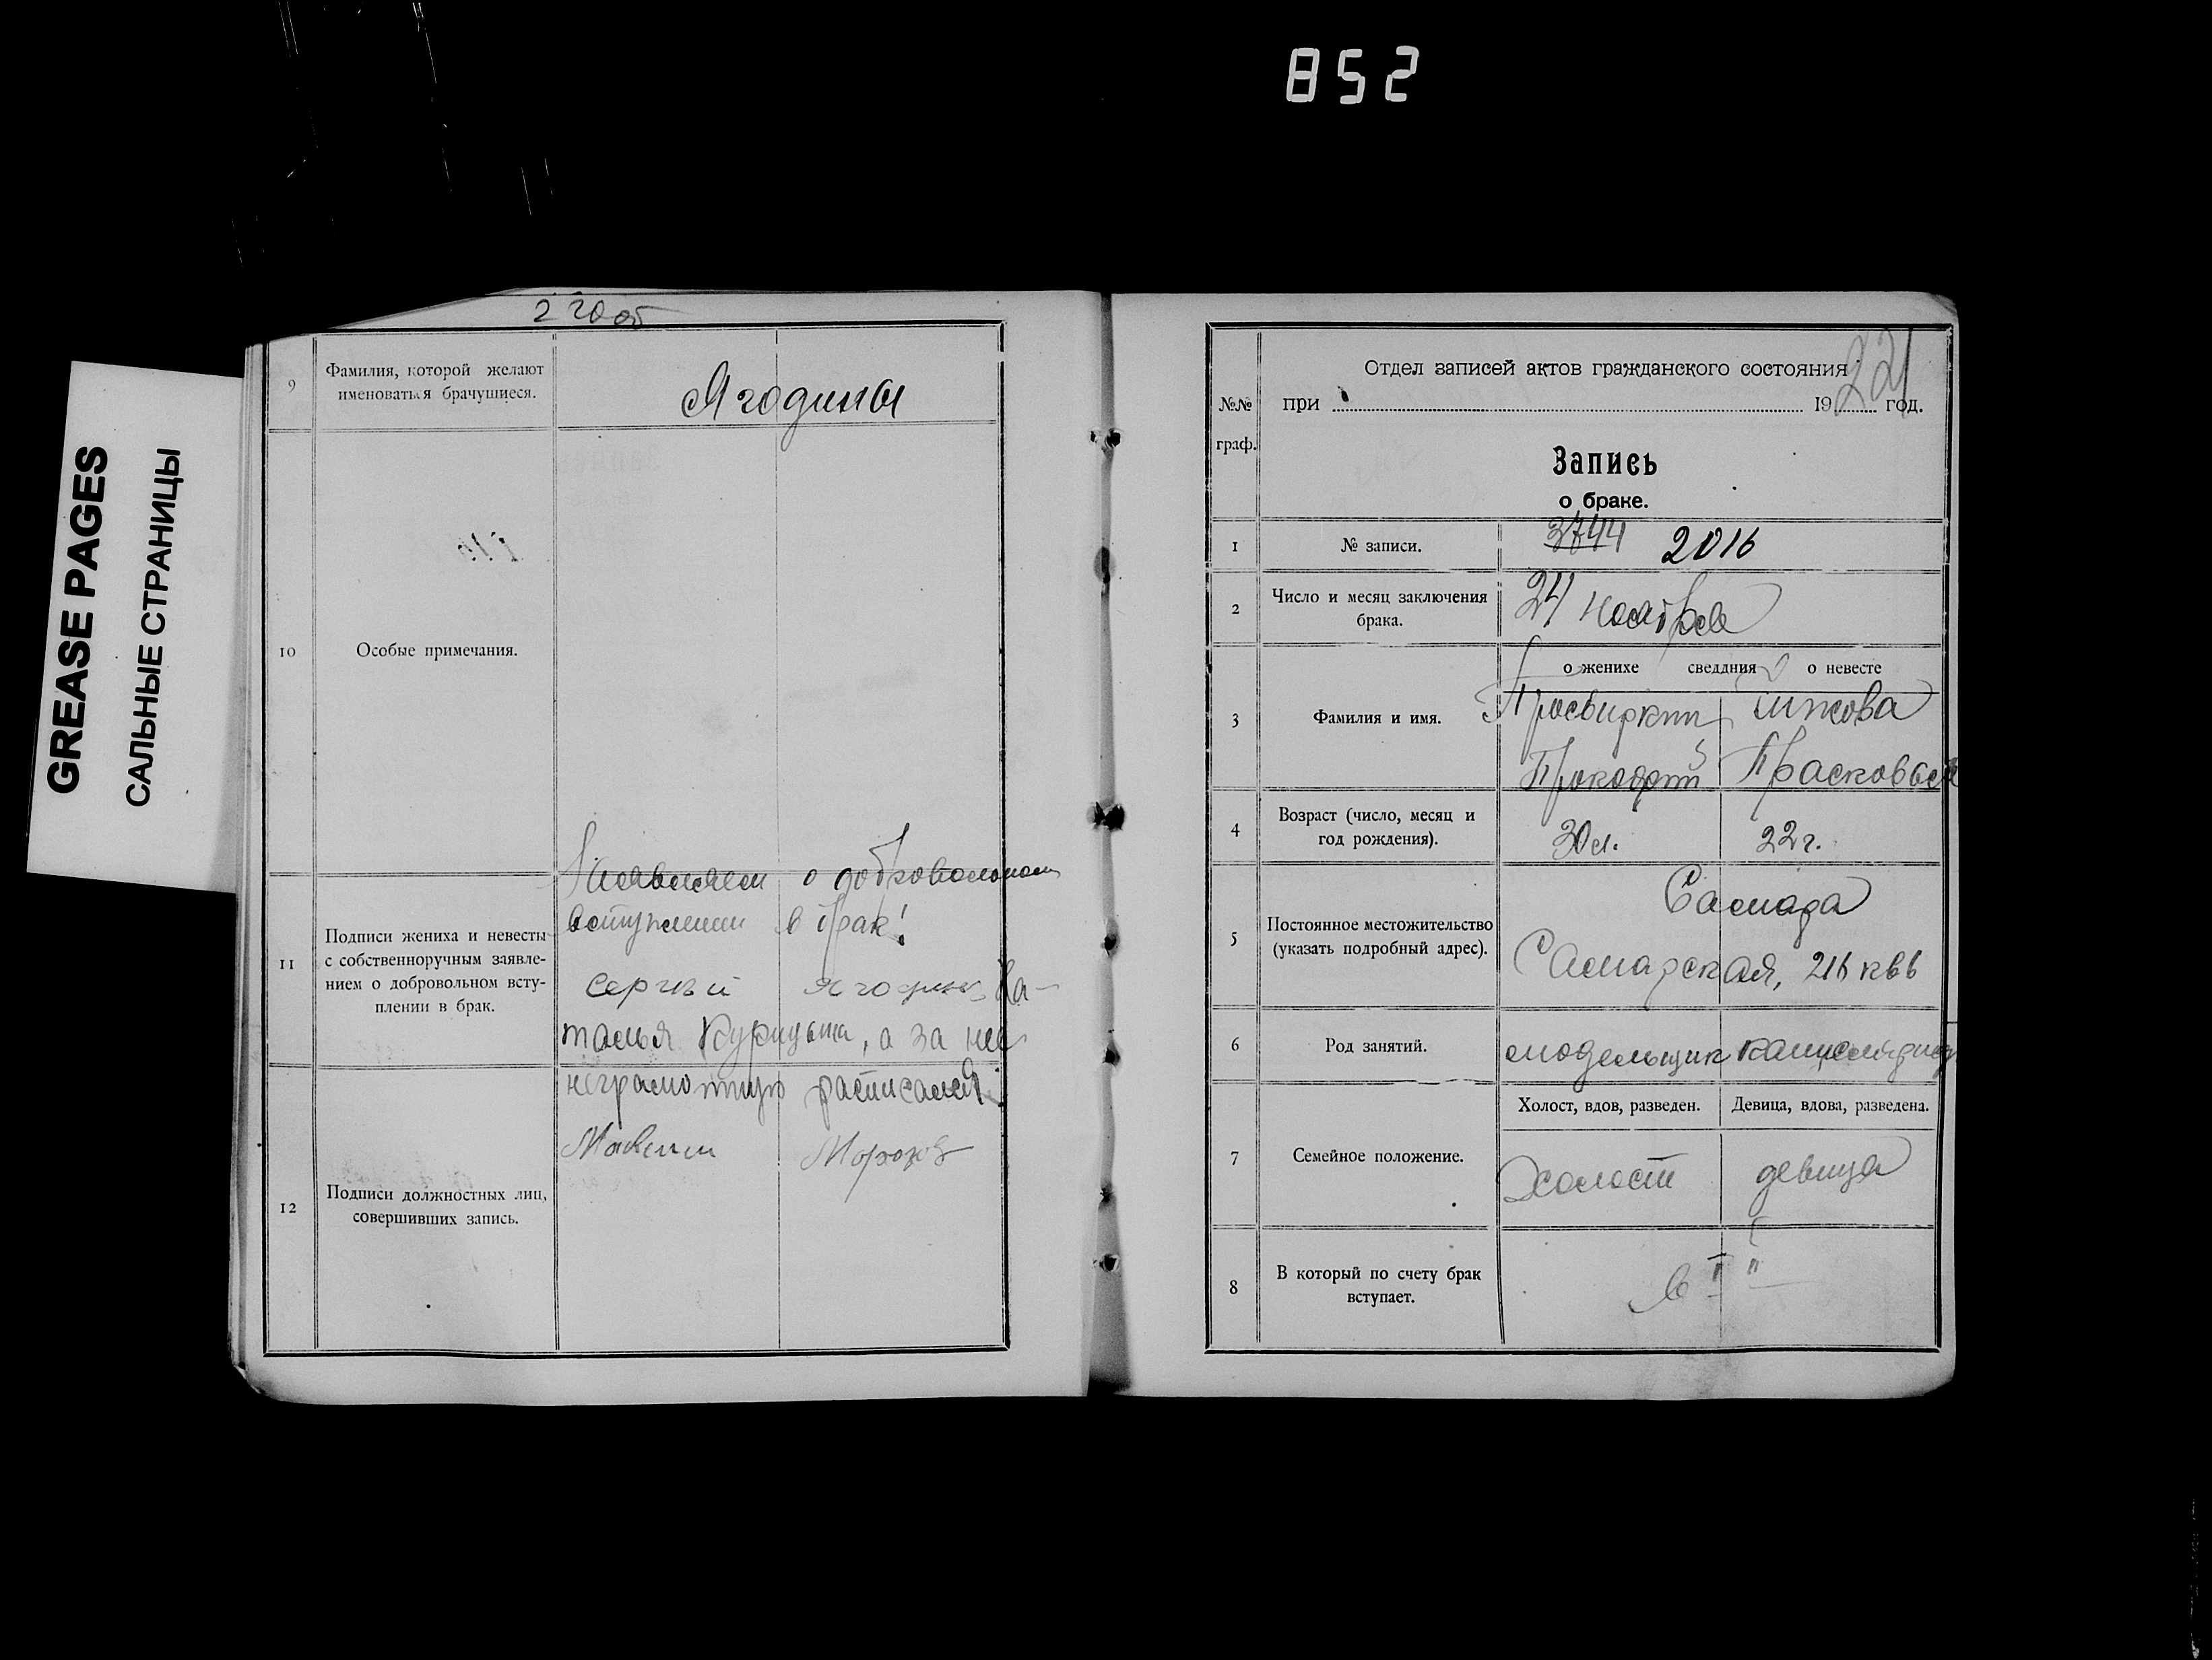 852
GREASE PAGES
САЛЬНЫЕ СТРАНИЦЫ
220 об
9
Фамилия, которой желают
именоваться брачущиеся.
Ягодины
10
Особые примечания.
11
Подписи жениха и невесты
с собственноручным заявле-
нием о добровольном всту-
плении в брак.
Заявляем о добровольном
вступлении в брак!
Сергей Ягодин, На-
талья, а за нее
неграмотную расписался
Максим Морозов
12
Подписи должностных лиц,
совершивших запись.
221
№№
граф.
Отдел записей актов гражданского состояния
при 19 год.
Запись
о браке.
1
№ записи.
3744 2016
2
Число и месяц заключения
брака.
24 ноября
о женихе сведдния о невесте
3
Фамилия и имя.
Просвиркин
Прокофий Прасковья
4
Возраст (число, месяц и
год рождения).
30 л. 22 г.
5
Постоянное местожительство
(указать подробный адрес).
Самара
Самарская, 216 кв 6
6
Род занятий.
модельщик
7
Семейное положение.
Холост, вдов, разведен. Девица, вдова, разведена.
холост девица
8
В который по счету брак
вступает.
в I